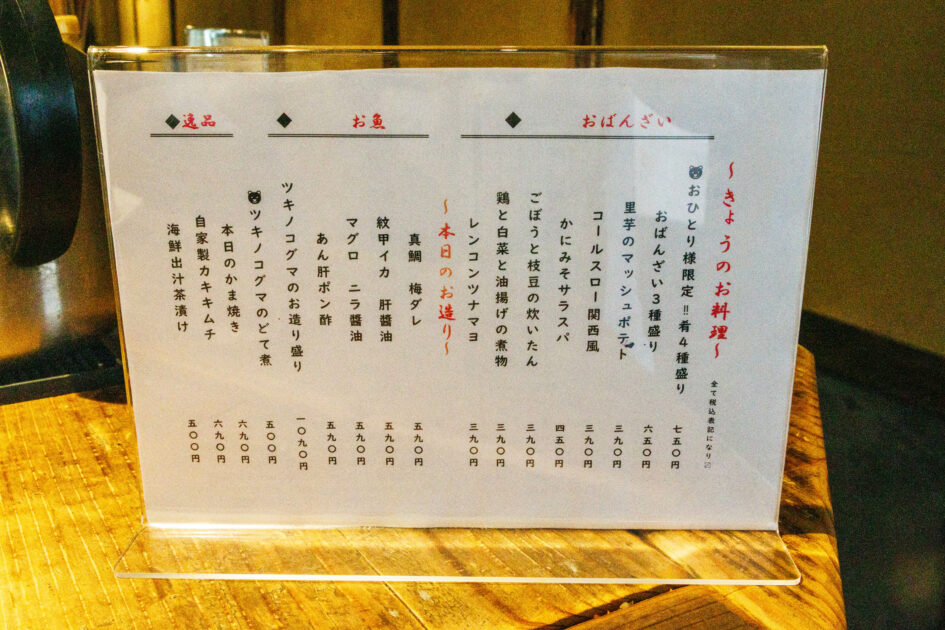 ～きょうのお料理～
全て税込表記になり〼
◆ おばんざい
おひとり様限定‼肴４種盛り 七五〇円
おばんざい３種盛り 六五〇円
里芋のマッシュポテト 三九〇円
コールスロー関西風 三九〇円
かにみそサラスパ 四五〇円
ごぼうと枝豆の炊いたん 三九〇円
鶏と白菜と油揚げの煮物 三九〇円
レンコンツナマヨ 三九〇円
◆ お魚
～本日のお造り～
真鯛 梅ダレ 五九〇円
紋甲イカ 肝醤油 五九〇円
マグロ ニラ醤油 五九〇円
あん肝ポン酢 五九〇円
ツキノコグマのお造り盛り 一〇九〇円
◆逸品
ツキノコグマのどて煮 五〇〇円
本日のかま焼き 六九〇円
自家製カキキムチ 六九〇円
海鮮出汁茶漬け 五〇〇円